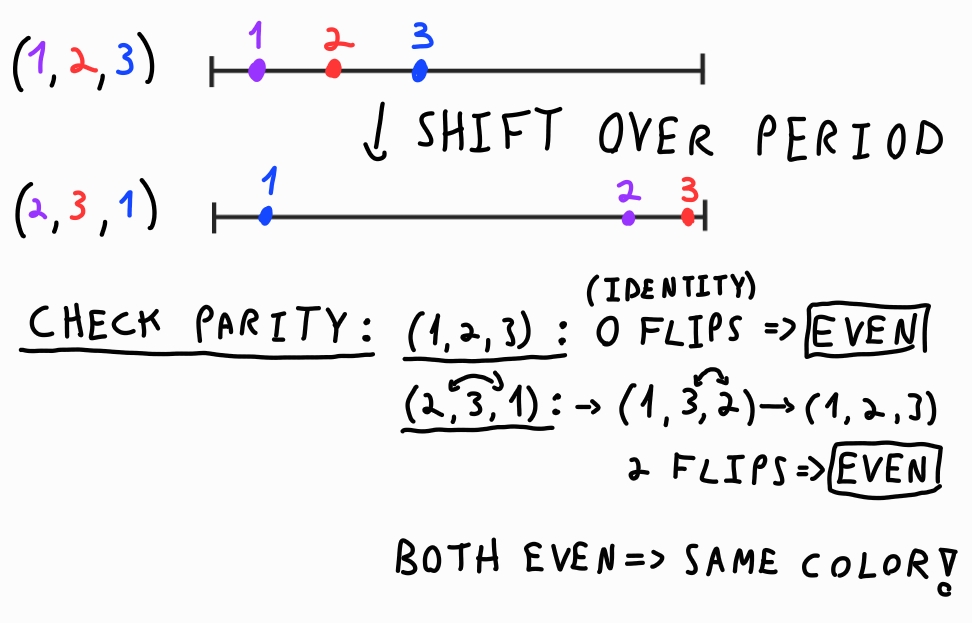 1 2 3
(1, 2, 3)
↓ SHIFT OVER PERIOD
1 2 3
(2, 3, 1)
(IDENTITY)
CHECK PARITY: (1, 2, 3): 0 FLIPS => EVEN
(2, 3, 1): → (1, 3, 2) → (1, 2, 3)
2 FLIPS => EVEN
BOTH EVEN => SAME COLOR!